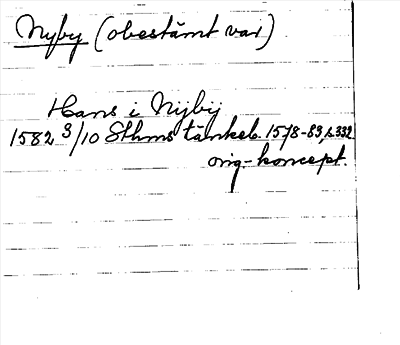 Nyby (obestämt var)
Hans i Nijbij
1582 3/10 Sthms tänkeb. 1578-83, s. 332
orig-koncept.